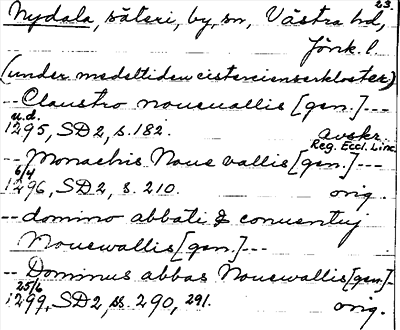 23.
Nydala, säteri, by, sn, Västra hd,
Jönk. l.
(under medeltiden cistercienserkloster)
-- Claustro noueuallis [gen.] ---
u.d.
1295, SD2, s. 182. avskr.
Reg. Eccl. Linc.
-- Monachis Noue vallis [gen.] ---
6/4
1296, SD2, s. 210. orig.
-- domino abbati & conuentuj
Nouewallis [gen.] ---
-- Dominus abbas Nouewallis [gen.] -
25/6
1299, SD2, ss. 290, 291. orig.